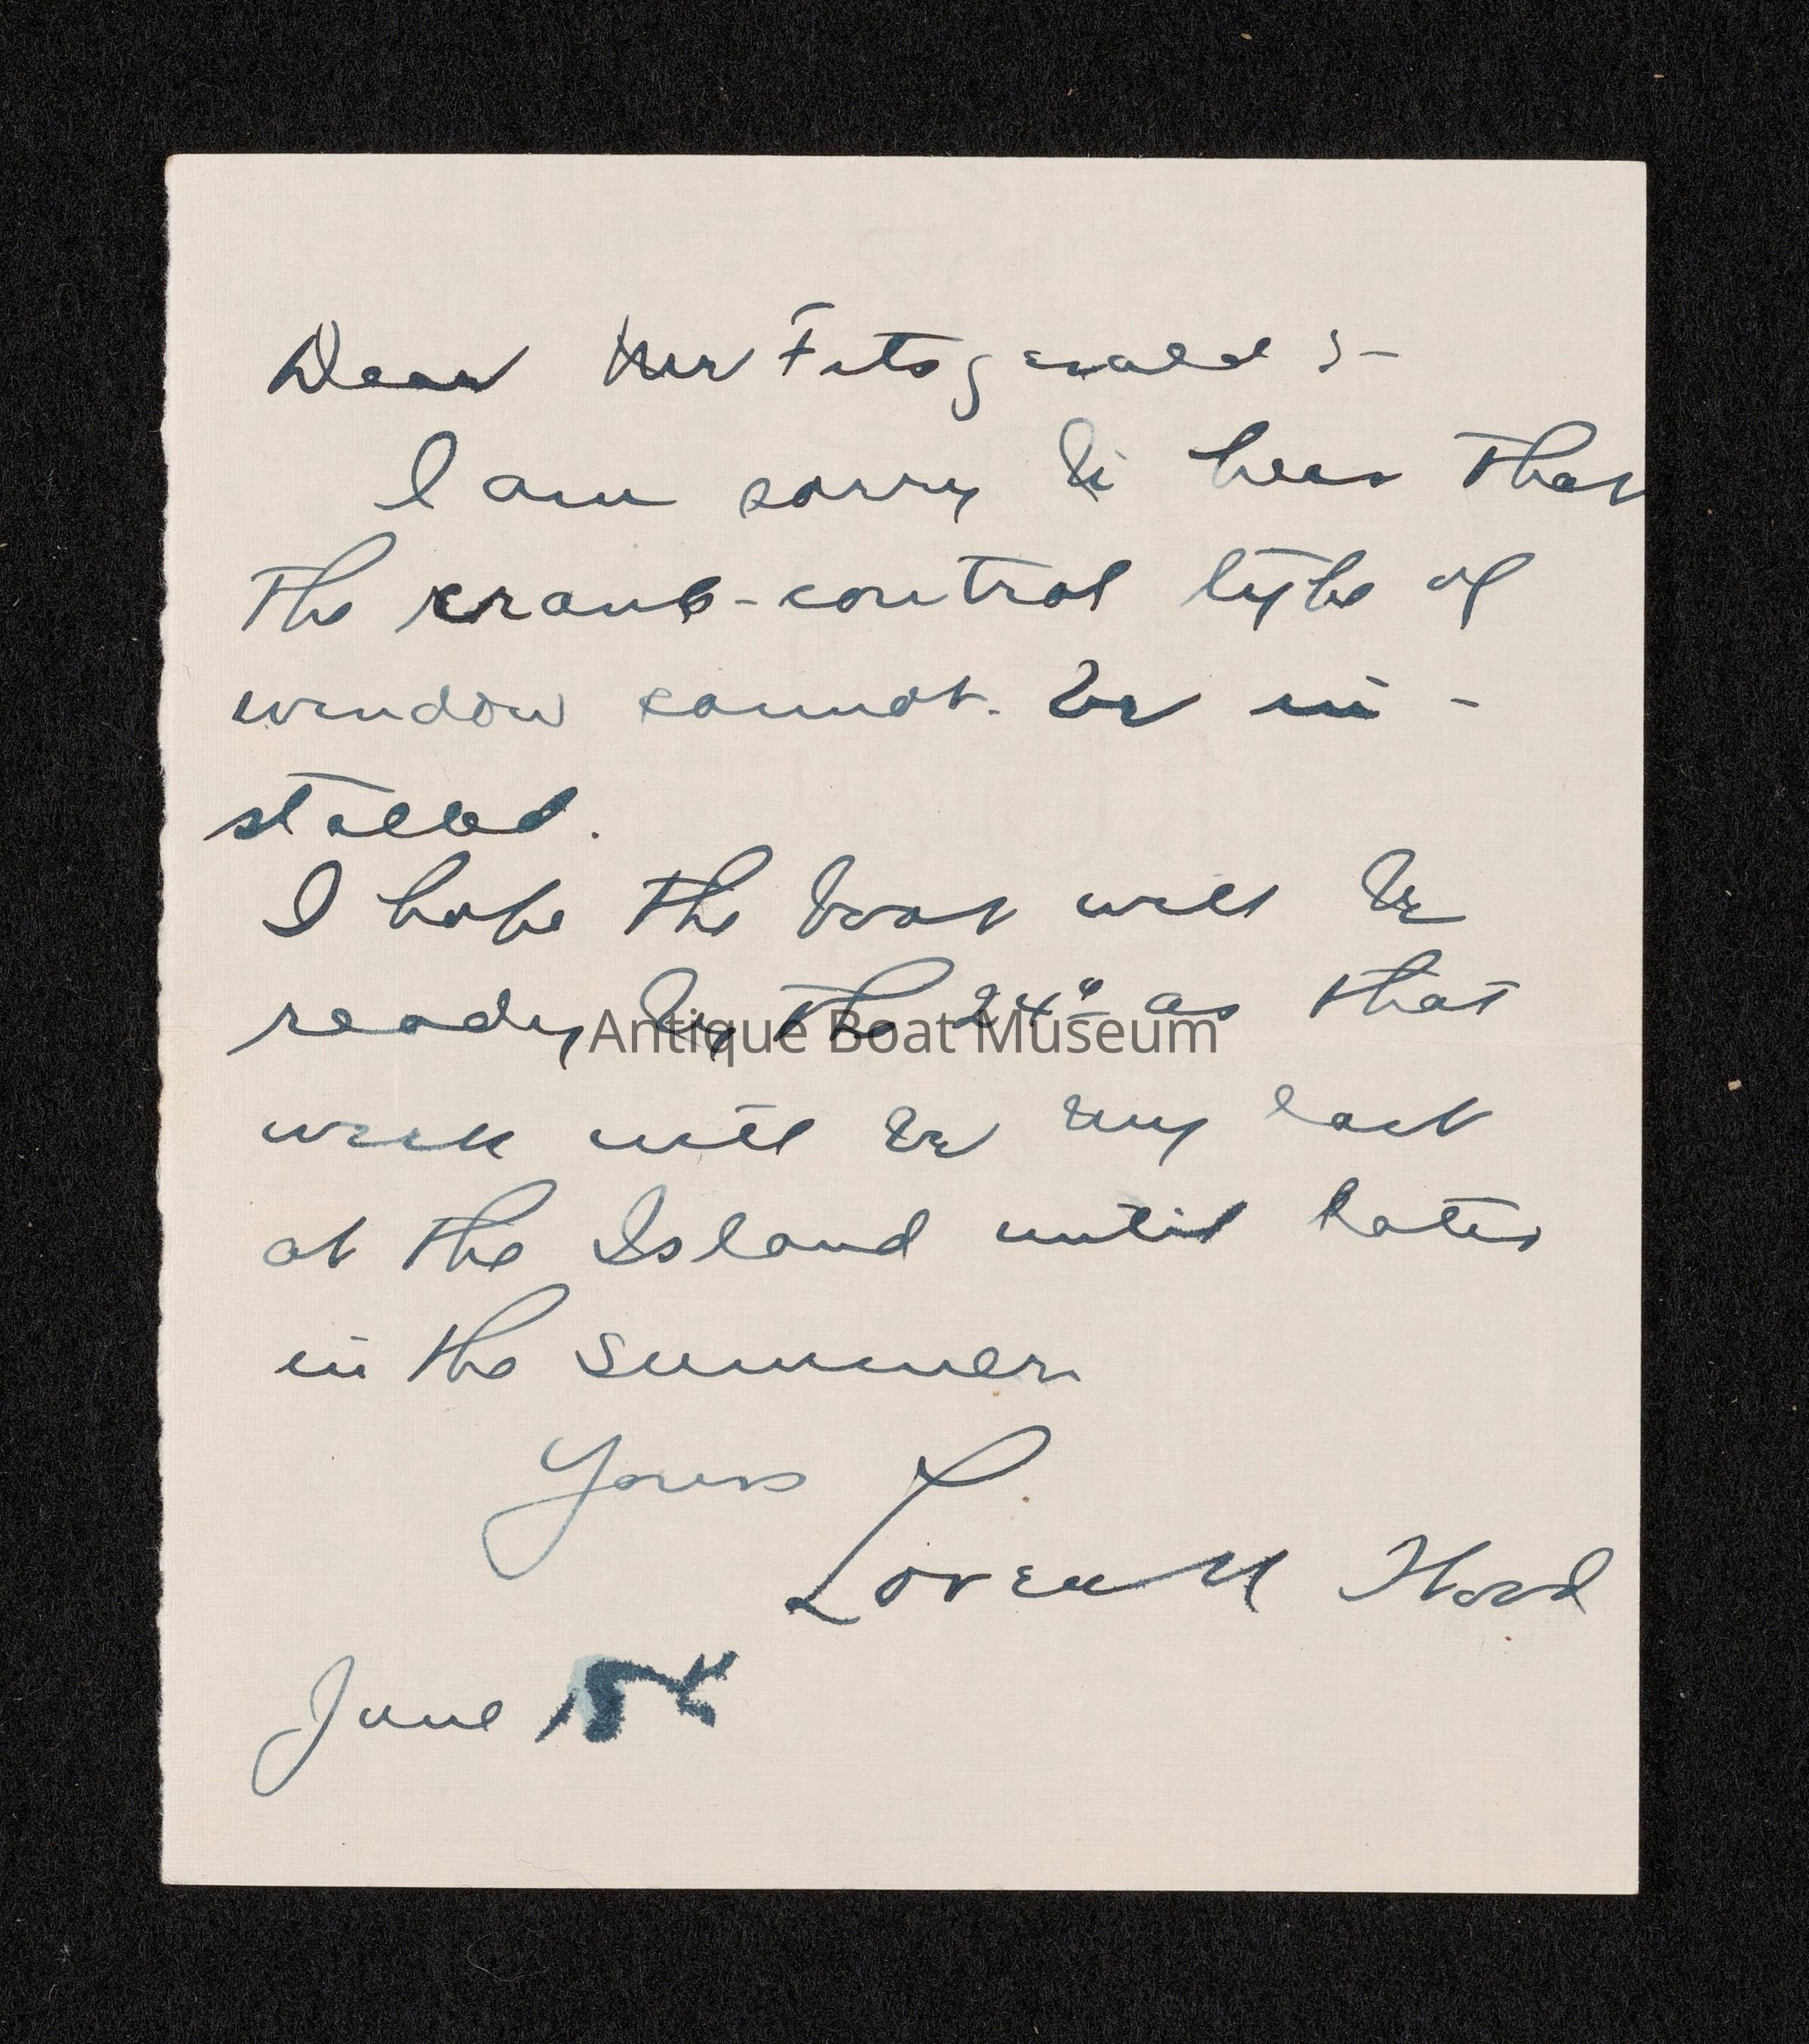 Dear Mr Fitzgerald :-
I am sorry to hear that
the crank-control type of
window cannot be in-
stalled.
I hope the boat will be
ready by the 24th as that
Antique Boat Museum
week will be my last
at the Island until later
in the summer.
Yours
Loren M Hord
June 15th